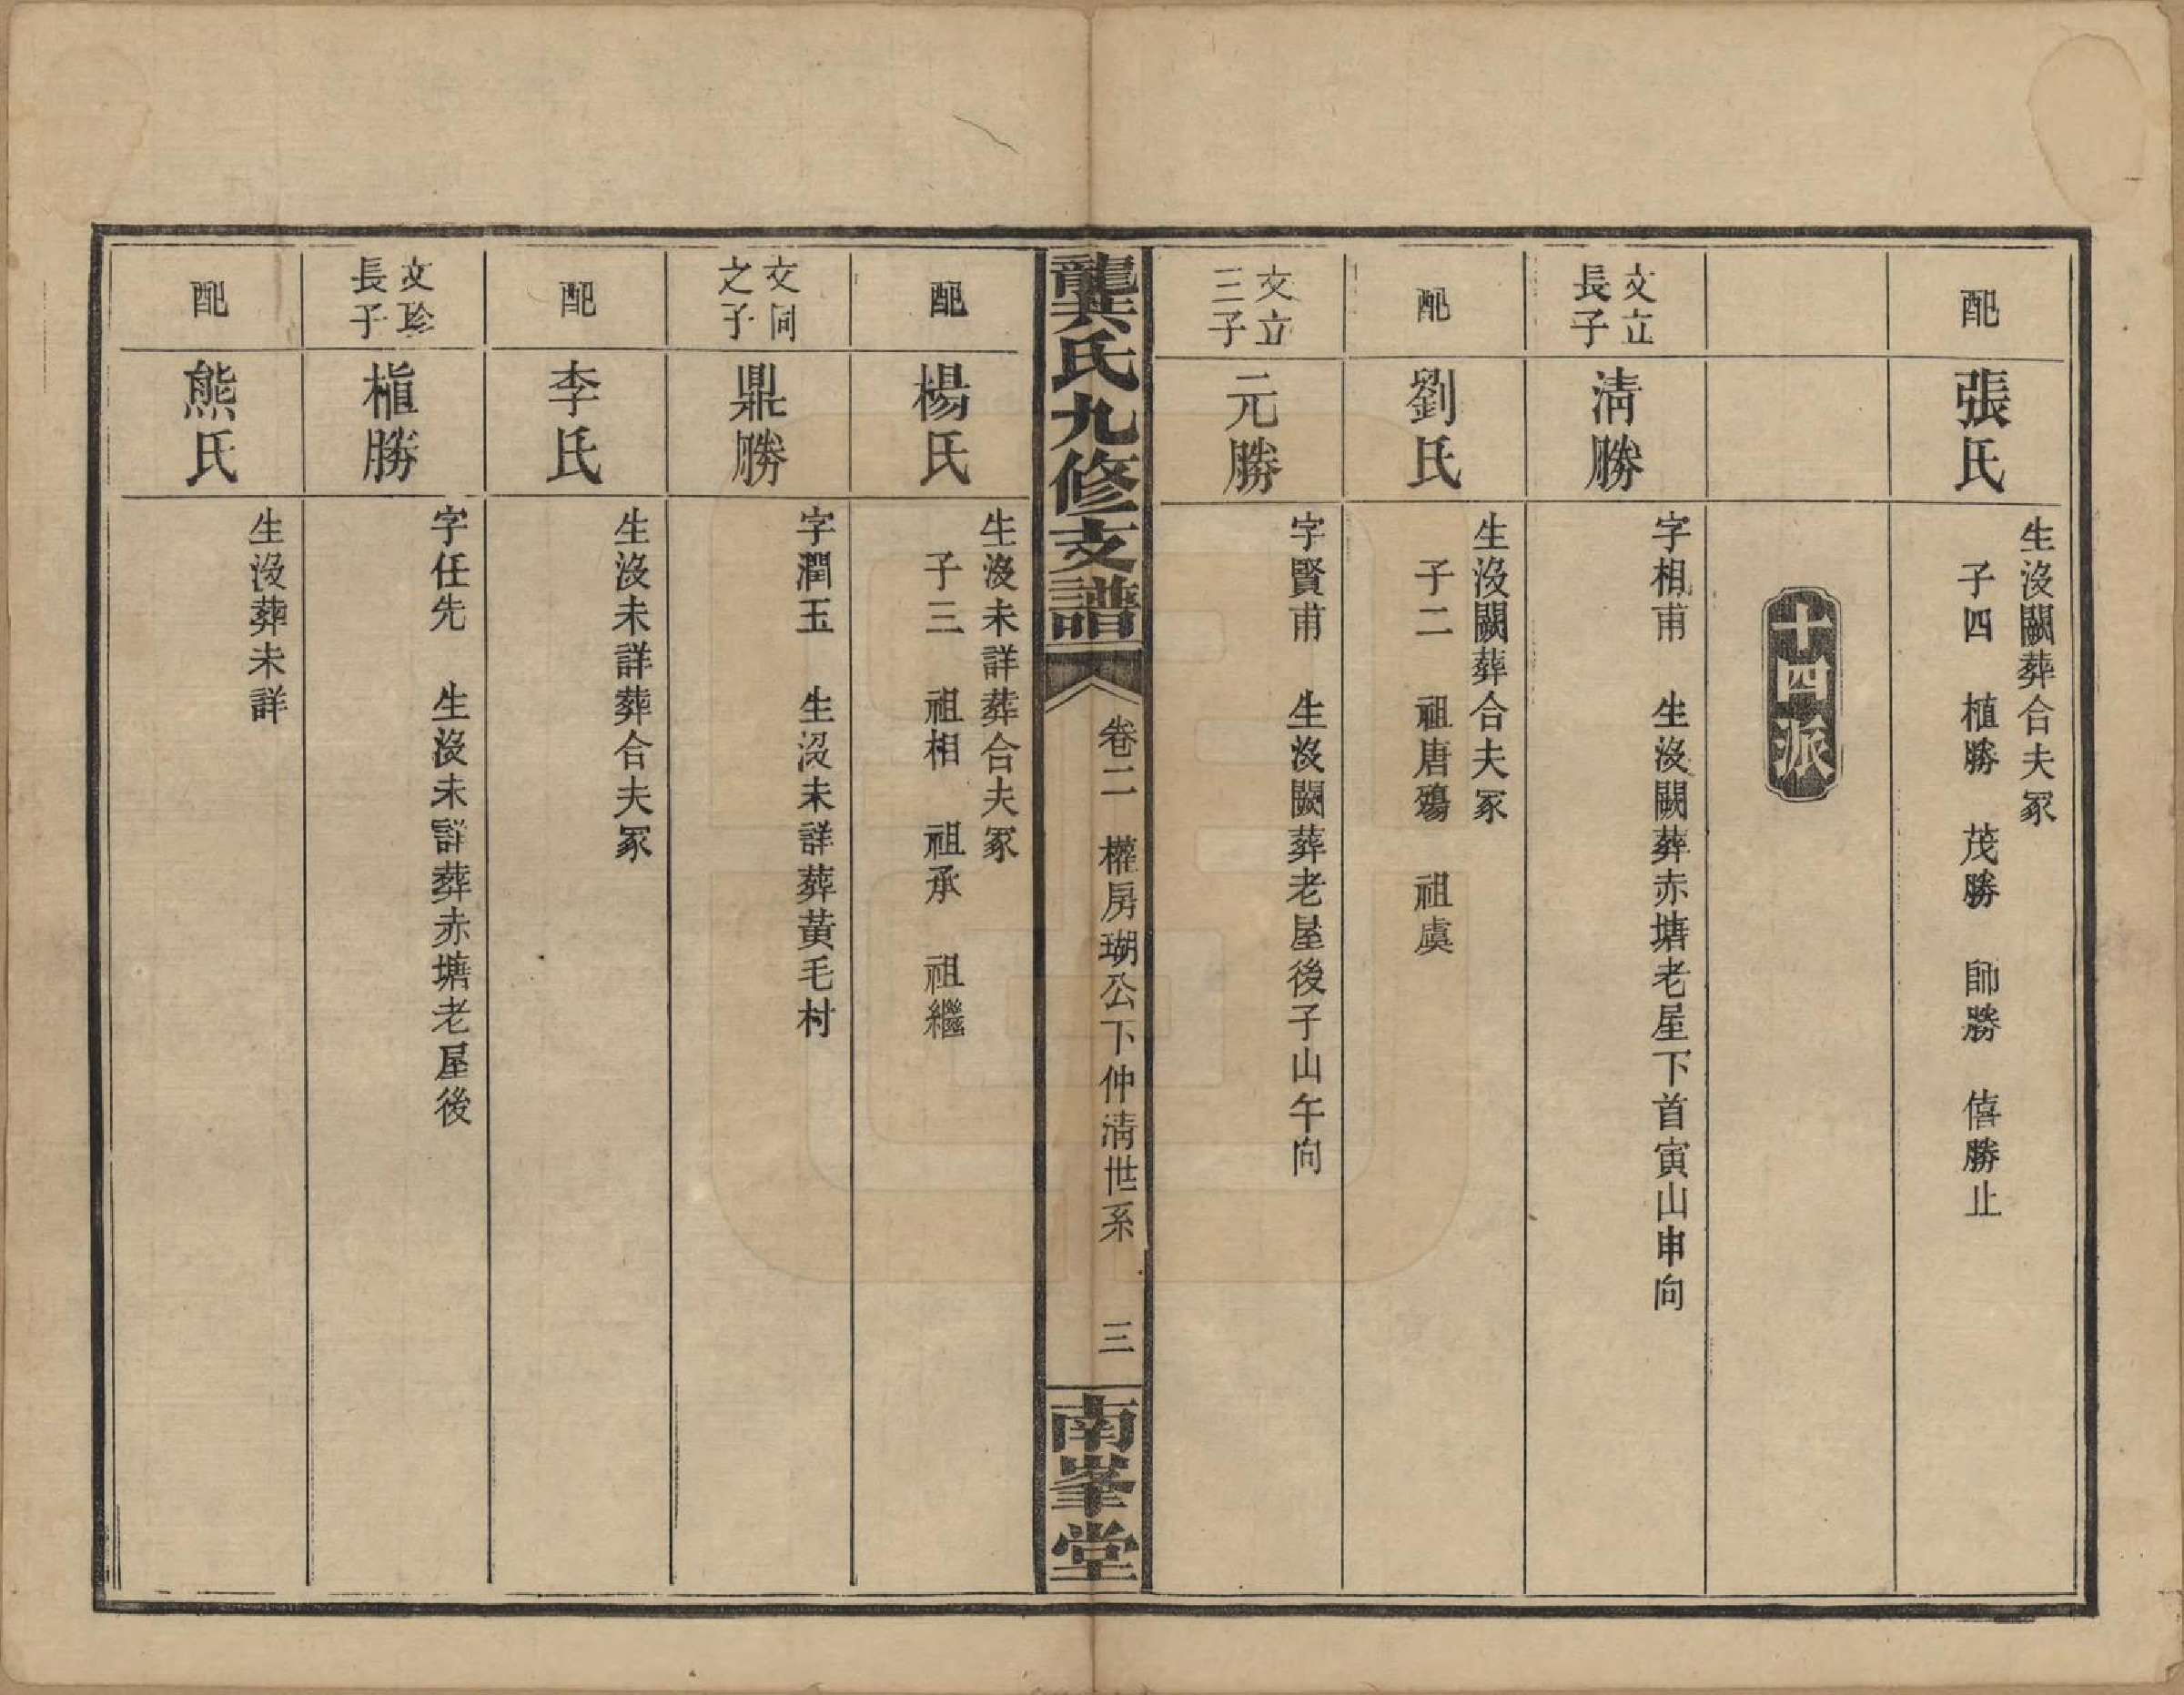 配
張氏
生沒闕葬合夫冢
子四　植勝　茂勝　師勝　僖勝止
十四派
文立
長子
清勝
字相甫　生沒闕葬赤塘老屋下首寅山申向
配
劉氏
生沒闕葬合夫冢
子二　祖唐殤　祖虞
文立
三子
元勝
字賢甫　生沒闕葬老屋後子山午向
龔氏九修支譜
卷二　權房瑚公下仲清世系　三
南峯堂
配
楊氏
生沒未詳葬合夫冢
子三　祖相　祖承　祖繼
文同
之子
鼎勝
字潤玉　生沒未詳葬黃毛村
配
李氏
生沒未詳葬合夫冢
文珍
長子
植勝
字任先　生沒未詳葬赤塘老屋後
配
熊氏
生沒葬未詳